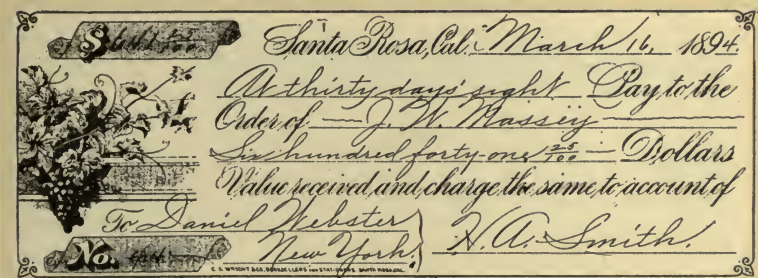 $641 25/100
Santa Rosa, Cal. March 16, 1894.
At thirty days' sight Pay to the
Order of J. W. Massey
Six hundred forty-one 25/100 Dollars
Value received and charge the same to account of
To Daniel Webster
New York.
H. A. Smith.
No.
C. A. WRIGHT & CO. BOOKSELLERS AND STATIONERS. SANTA ROSA, CAL.